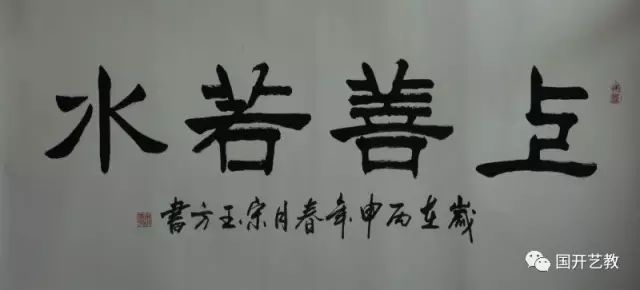 上善若水
歲在丙申年春月宗玉方書
国开艺教